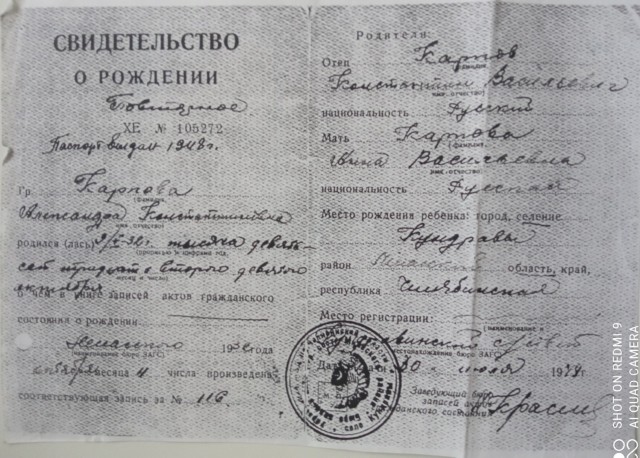 СВИДЕТЕЛЬСТВО
О РОЖДЕНИИ
Повторное
ХЕ № 105272
Паспорт выдан 1948 г.
Гр. Карпова
(фамилия,
Александра Константиновна
имя, отчество)
родился (лась) 9/X-32 г. тысяча девять-
(прописью и цифрами год,
сот тридцать второго девятого
месяц и число)
октября
о чем в книге записей актов гражданского
состояния о рождении
1932 года
(наименование бюро ЗАГС)
октября месяца 11 числа произведена
соответствующая запись за № 116
Родители:
Отец Карпов
(фамилия,
Константин Васильевич
имя, отчество)
национальность Русский
Мать Карпова
(фамилия,
Васильевна
имя, отчество)
национальность Русская
Место рождения ребенка: город, селение
Кундравы
район область, край,
республика Челябинская
Место регистрации:
(наименование и
местоположение бюро ЗАГС)
30 июля
Заведующий бюро
записей актов
гражданского состояния
SHOT ON REDMI 9
AI QUAD CAMERA